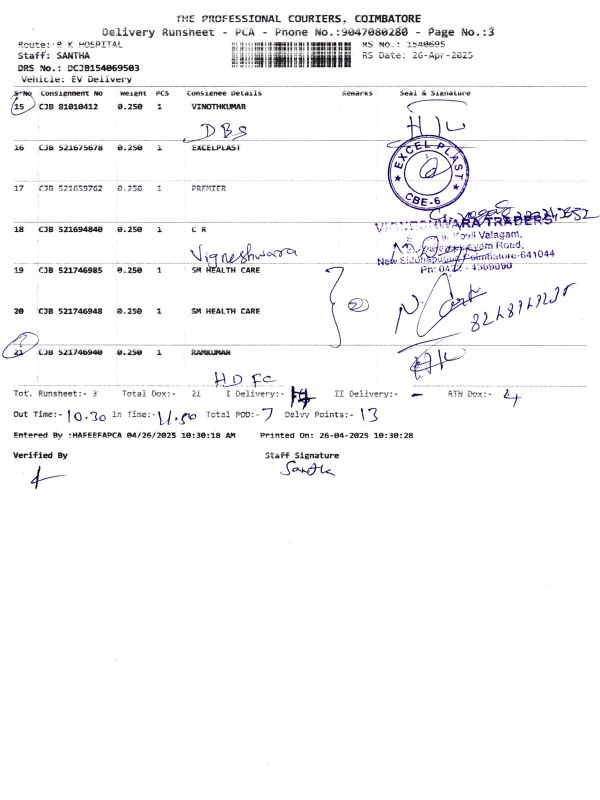 THE PROFESSIONAL COURIERS, COIMBATORE
Delivery Runsheet - PCA - Phone No.:9047080280 - Page No.:3
Route: R K HOSPITAL RS No.: 1540695
Staff: SANTHA RS Date: 26-Apr-2025
DRS No.: DCJB154069503
Vehicle: EV Delivery
S·No Consignment No Weight PCS Consignee Details Remarks Seal & Signature
15 CJB 81010412 0.250 1 VINOTHKUMAR
DBS
16 CJB 521675678 0.250 1 EXCELPLAST
EXCEL PLAST
CBE-6
17 CJB 521659762 0.250 1 PREMIER
18 CJB 521694840 0.250 1 C R
VIGNESHWARA TRADERS
Vigneshwara
New Siddhapudur, Coimbatore-641044
19 CJB 521746985 0.250 1 SM HEALTH CARE
2
20 CJB 521746948 0.250 1 SM HEALTH CARE
21 CJB 521746940 0.250 1 RAMKUMAR
HDFC
Tot. Runsheet:- 3 Total Dox:- 21 I Delivery:- II Delivery:- - RTN Dox:- 4
Out Time:- 10.30 In Time:- 11.50 Total POD:- 7 Delvy Points:- 13
Entered By :HAFEEFAPCA 04/26/2025 10:30:18 AM Printed On: 26-04-2025 10:30:28
Verified By Staff Signature
Santha